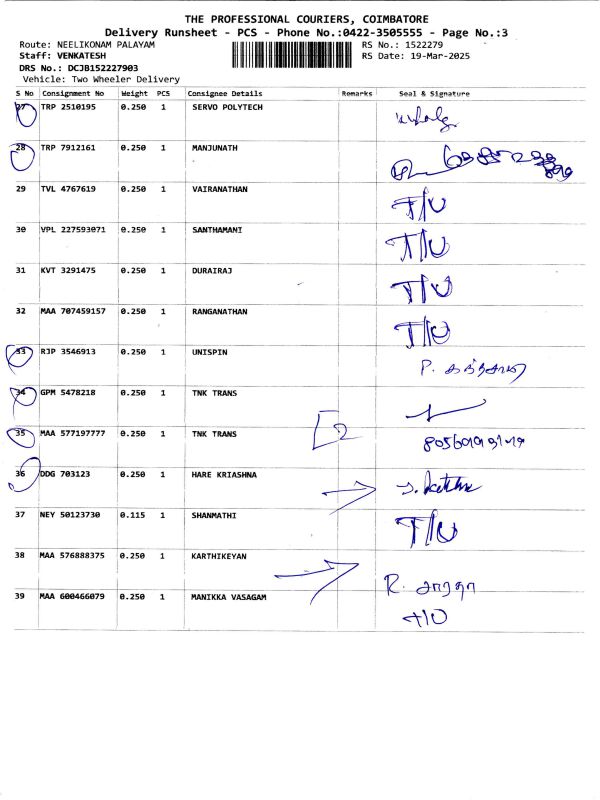 THE PROFESSIONAL COURIERS, COIMBATORE
Delivery Runsheet - PCS - Phone No.:0422-3505555 - Page No.:3
Route: NEELIKONAM PALAYAM RS No.: 1522279
Staff: VENKATESH RS Date: 19-Mar-2025
DRS No.: DCJB152227903
Vehicle: Two Wheeler Delivery
S No Consignment No Weight PCS Consignee Details Remarks Seal & Signature
27 TRP 2510195 0.250 1 SERVO POLYTECH
28 TRP 7912161 0.250 1 MANJUNATH
29 TVL 4767619 0.250 1 VAIRANATHAN T/U
30 VPL 227593071 0.250 1 SANTHAMANI T/U
31 KVT 3291475 0.250 1 DURAIRAJ T/U
32 MAA 707459157 0.250 1 RANGANATHAN T/U
33 RJP 3546913 0.250 1 UNISPIN P.
34 GPM 5478218 0.250 1 TNK TRANS
35 MAA 577197777 0.250 1 TNK TRANS 2
36 DDG 703123 0.250 1 HARE KRIASHNA
37 NEY 50123730 0.115 1 SHANMATHI T/U
38 MAA 576888375 0.250 1 KARTHIKEYAN R. சாரதா
39 MAA 600466079 0.250 1 MANIKKA VASAGAM T/U